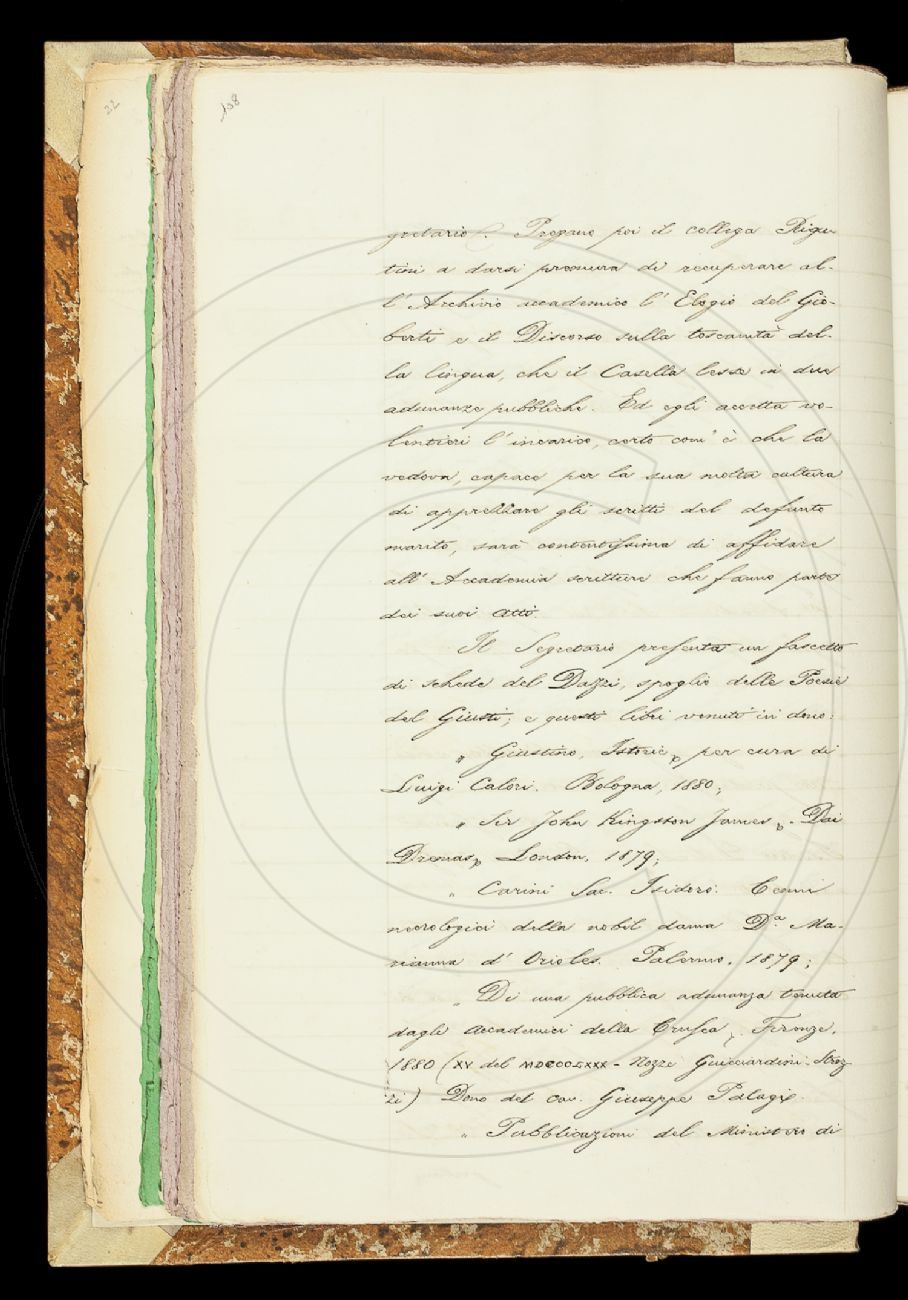 22
138
gretario. Pregano poi il collega Rigu-
tini a darsi premura di recuperare al-
l'Archivio accademico l'Elogio del Gio-
berti e il Discorso sulla toscanità del-
la lingua, che il Casella lesse in due
adunanze pubbliche. Ed egli accetta vo-
lentieri l'incarico, certo com'è che la
vedova, capace per la sua molta cultura
di apprezzare gli scritti del defunto
marito, sarà contentissima di affidare
all'Accademia scritture che fanno parte
dei suoi Atti.
Il Segretario presenta un fascetto
di schede del Dazzi, spoglio delle Poesie
del Giusti; e questi libri venuti in dono:
„ Giustino, Istorie, per cura di
Luigi Calori. Bologna, 1880;
„ Sir John Kingston James. Dai
Dremas, London, 1879;
„ Carini Sac. Isidoro. Cenni
necrologici della nobil dama D.ª Ma-
rianna d'Orioles. Palermo, 1879;
„ Di una pubblica adunanza tenuta
dagli Accademici della Crusca, Firenze,
1880 (XV del MDCCCLXXX - Nozze Guicciardini-Stroz-
zi) Dono del cav. Giuseppe Palagi.
„ Pubblicazioni del Ministero di